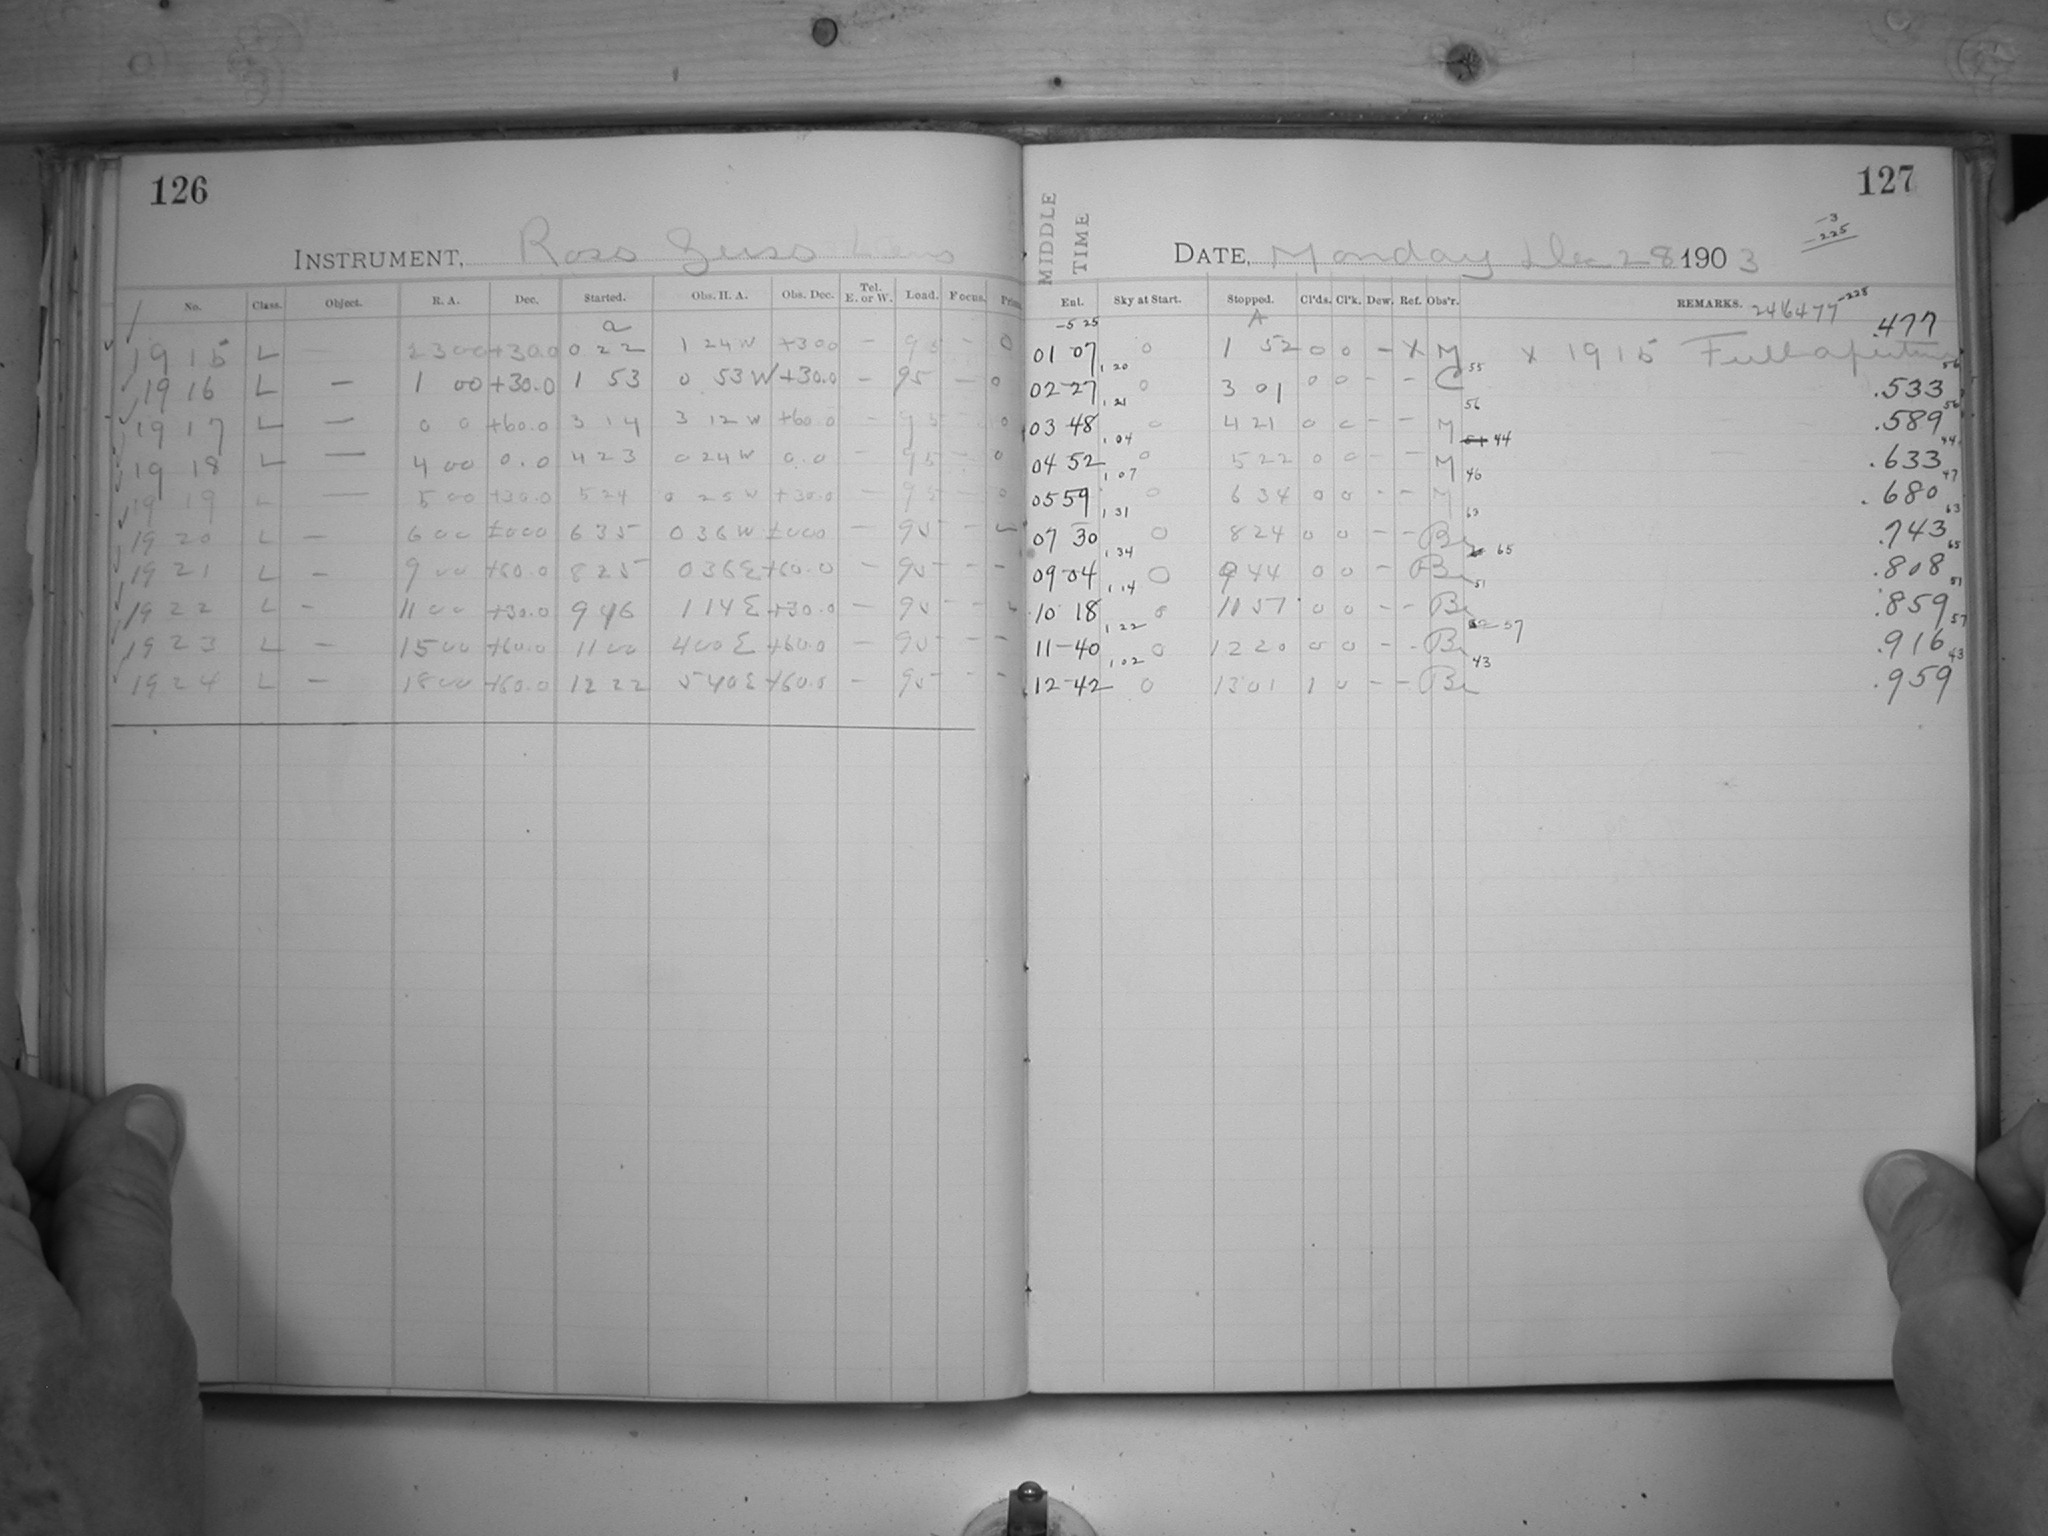 126
INSTRUMENT, Ross Zeiss Lens
No. Class. Object. R. A. Dec. Started. Obs. H. A. Obs. Dec. Tel. E. or W. Load. Focus.
a
1915 L — 23 00 +30.0 0 22 1 24 W +30.0 — 95 — 0
1916 L — 1 00 +30.0 1 53 0 53 W +30.0 — 95 — 0
1917 L — 0 0 +60.0 3 14 3 12 W +60.0 — 95 — 0
1918 L — 4 00 0.0 4 23 0 24 W 0.0 — 95 — 0
1919 L — 5 00 +30.0 5 24 0 25 W +30.0 — 95 — 0
1920 L — 6 00 ±000 6 35 0 36 W ±000 — 95 — –
1921 L — 9 00 +60.0 8 25 0 36 E +60.0 — 95 — –
1922 L — 11 00 +30.0 9 46 1 14 E +30.0 — 95 — –
1923 L — 15 00 +60.0 11 00 4 00 E +60.0 — 95 — –
1924 L — 18 00 +60.0 12 22 5 40 E +60.0 — 95 — –
127
MIDDLE TIME
-3
-225
DATE, Monday Dec 28 1903
Enl. Sky at Start. Stopped. Cl'ds. Cl'k. Dew. Ref. Obs'r. REMARKS. 246477 -228
-5 25 A .477
01 07 0 1 52 0 0 – X M x 1915 Full aperture
1,20 55 56
02 27 0 3 01 0 0 – – C .533
1,21 56 56
03 48 0 4 21 0 0 – – M .589
1,04 44 44
04 52 0 5 22 0 0 – – M .633
1,07 46 47
05 59 0 6 34 0 0 – – M .680
1,31 63 63
07 30 0 8 24 0 0 – – Br .743
1,34 65 65
09 04 0 9 44 0 0 – Br .808
1,14 51 51
10 18 0 11 57 0 0 – – Br .859
1,22 57 57
11–40 0 12 20 0 0 – – Br .916
1,02 43 43
12–42 0 13 01 1 0 – – Br .959